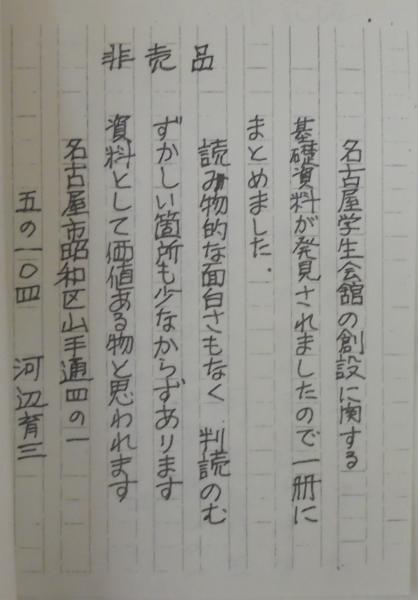 非売品
名古屋学生会館の創設に関する
基礎資料が発見されましたので一冊に
まとめました.
読み物的な面白さもなく 判読のむ
ずかしい箇所も少なからずあります
資料として価値ある物と思われます
名古屋市昭和区山手通四の一
五の一〇四 河辺育三